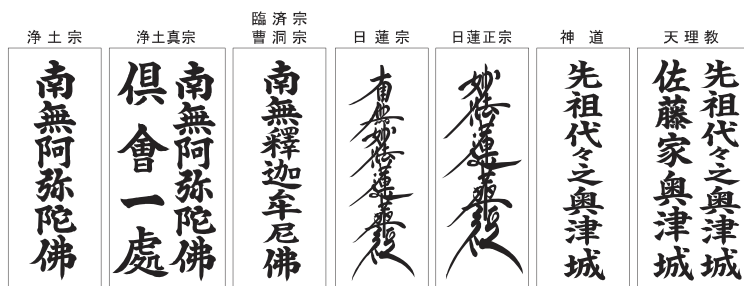 浄土宗
南無阿弥陀佛
浄土真宗
南無阿弥陀佛
倶會一處
臨済宗
曹洞宗
南無釋迦牟尼佛
日蓮宗
南無妙法蓮華経
日蓮正宗
妙法蓮華経
神道
先祖代々之奥津城
天理教
先祖代々之奥津城
佐藤家奥津城